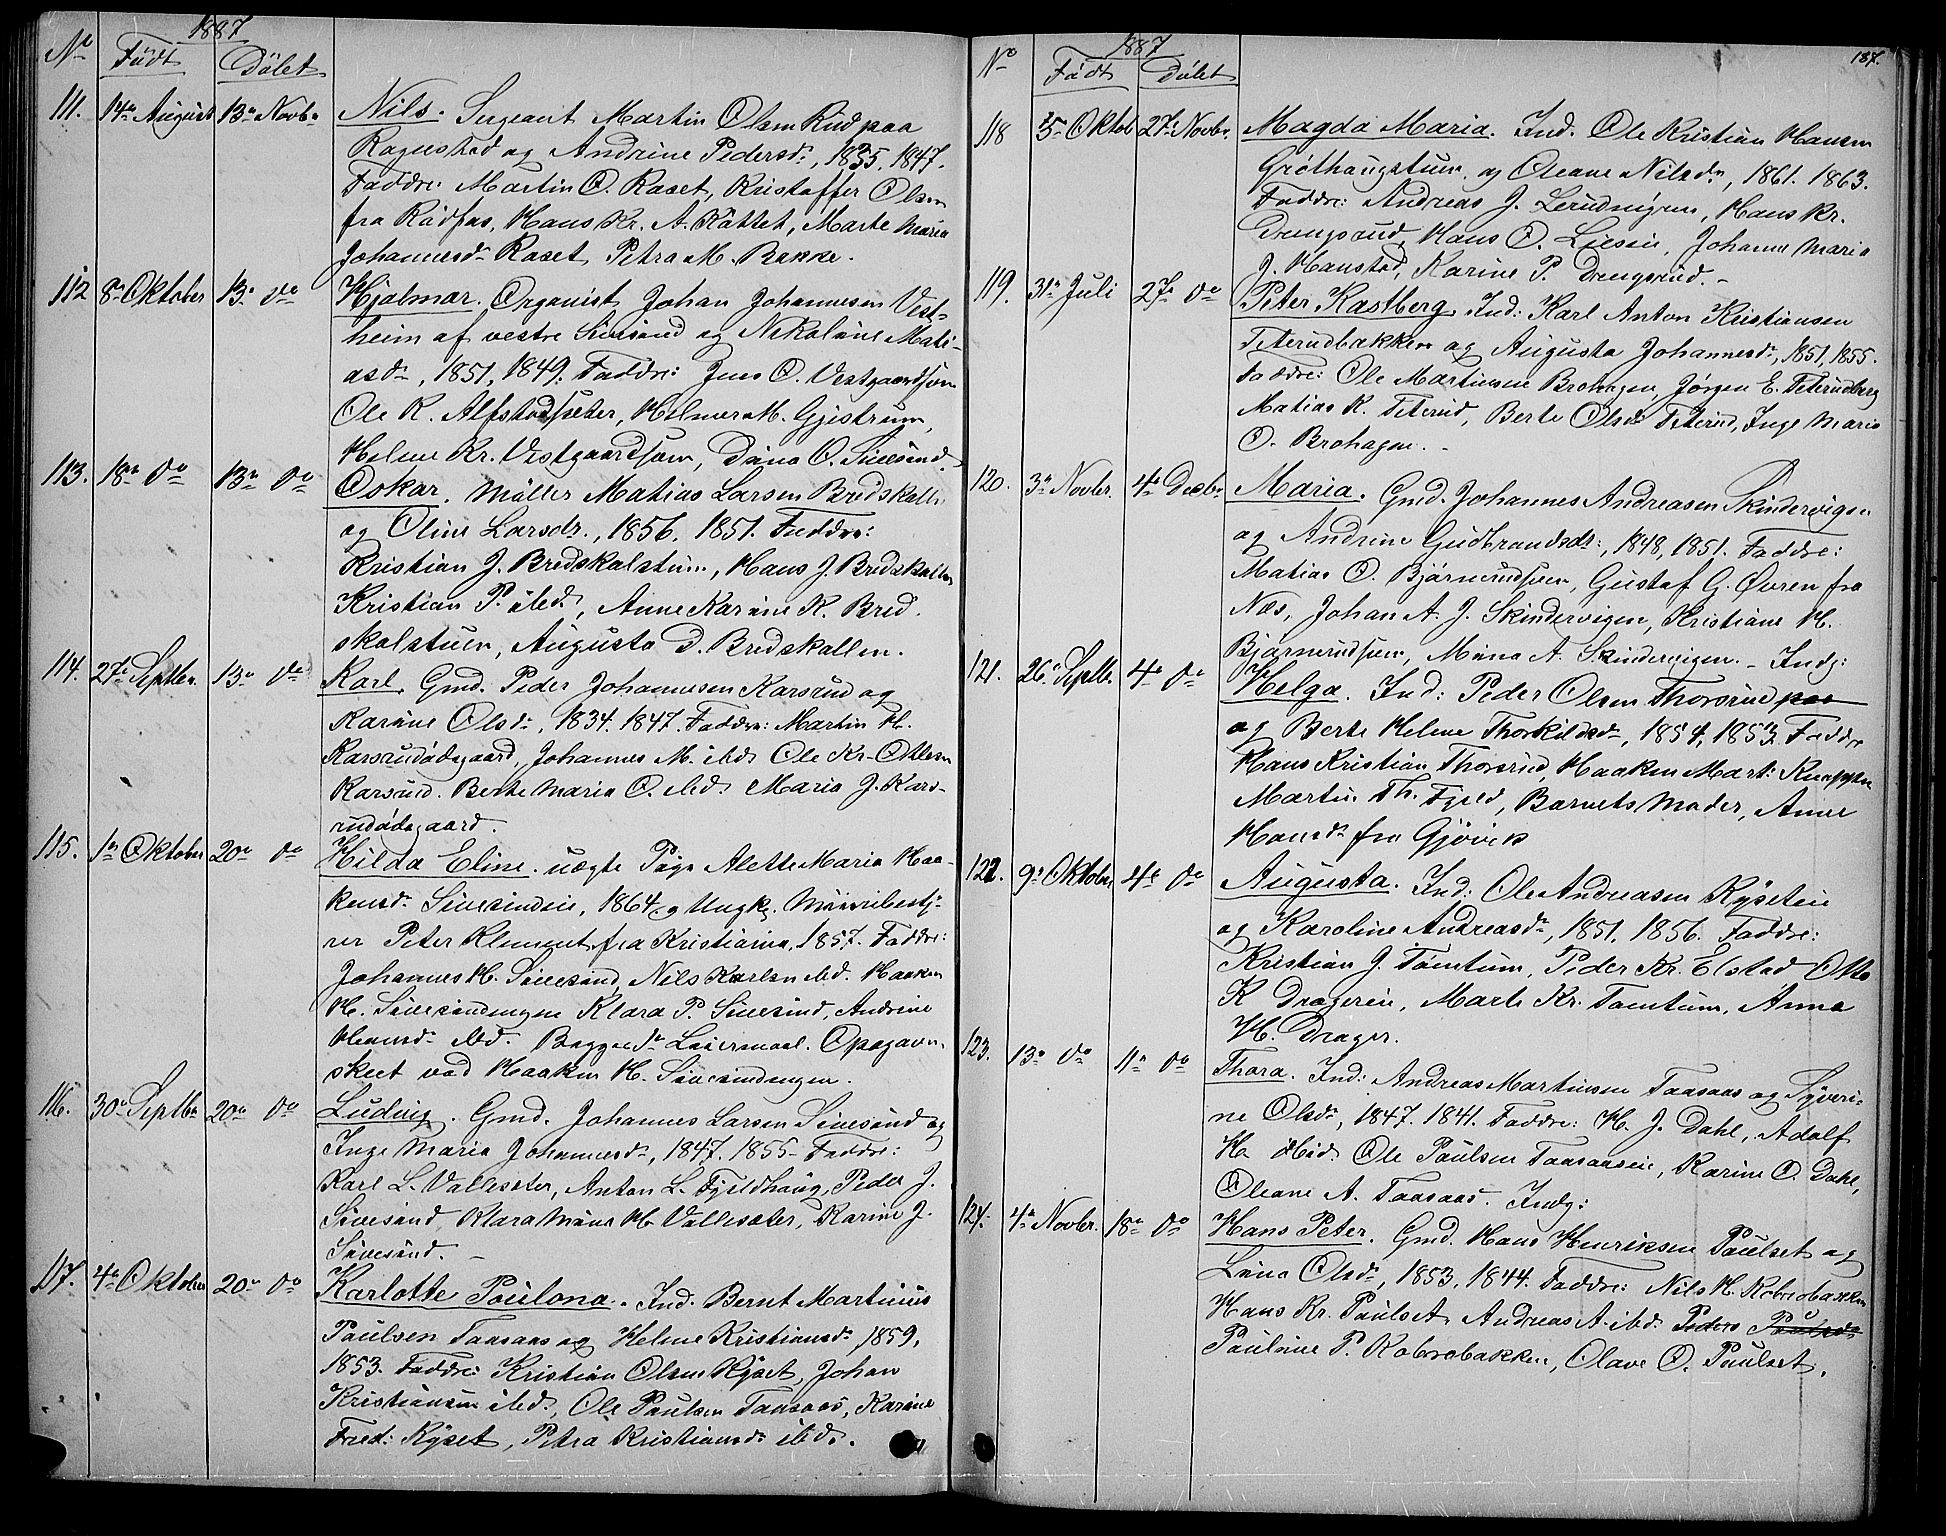 1887
No Født Døbt
111. 14de August 13de Novbr Nils. Sergeant Martin Olsen Rud paa
Ragnstad og Andrine Pedersdr, 1835. 1847.
Faddre: Martin O. Raset, Kristoffer Olsen
fra Raadfos, Hans Kr. A. Kattet, Marte Maria
Johannesdr Raset, Petra M. Bakke.
112 8de Oktober 13de do Hjalmar. Organist Johan Johannesen Vest-
heim af vestre Sivesind og Nikoline Mati-
asdr, 1851, 1849. Faddre: Jens O. Vestgaardsven
Ole K. Alfstadsæter, Helmer M. Gjistrum,
Helene Kr. Vestgaardsven, Dina O. Sivesind.
113. 18de do 13de do Oskar. Møller Matias Larsen Bredskallen
og Oline Larsdr., 1856. 1851. Faddre:
Kristian J. Bredskalstuen, Hans J. Bredskallen
Kristian P. ibd., Anne Karine K. Bred.
skalstuen, Augusta D. Bredskallen.
114. 27de Septbr. 13de do Karl. Gmd. Peder Johannesen Karsrud og
Karine Olsdr, 1834. 1847. Faddre: Martin H.
Karsrudødegaard, Johannes M. ibd. Ole Kr. Ottesen
Karsrud. Berte Maria O. ibd. Maria J. Kars-
rudødegaard.
115. 1de Oktober 20de do Hilda Eline. uægte Pige Alette Maria Haa-
kensdr Sivesindeie, 1864 og Ungk. Murerbestj-
rer Peter Klement fra Kristiania, 1857. Faddre:
Johannes H. Sivesind, Nils Karlsen ibd. Haaken
H. Sivesindengen Klara P. Sivesind, Andrine
Hansdr ibd. Begges 1de Leiermaal. Opgaven
skeet ved Haaken H. Sivesindengen.
116. 30de Septbr 20de do Ludvig. Gmd. Johannes Larsen Sivesind og
Inge Maria Johannesdr, 1847. 1855 - Faddre:
Karl L. Vallesæter, Anton L. Fjeldhaug, Peder J.
Sivesind, Klara Mina H. Vallesæter, Karine J.
Sivesind. -
117. 4de Oktober 20de do Karlotte Paulona. Ind. Bernt Martinius
Paulsen Taasaas og Helene Kristiansdr 1859,
1853. Faddre: Kristian Olsen Ryset, Johan
Kristiansen ibd., Ole Paulsen Taasaas, Karine
Fred: Ryset, Petra Kristiansdr ibd.
1887 187.
No Født Døbt
118 25de Oktob 27de Novbr. Magda Maria. Ind. Ole Kristian Hansen
Grøthaugstuen og Oleane Nilsdr, 1861. 1863.
Faddre: Andreas J. Lerudnigen, Hans Kr.
Drengsrud, Hans O. Lieseie, Johanne Maria
J. Hanstad, Karine P. Drengsrud. -
119. 31de Juli 27de do Peter Kastberg. Ind: Karl Anton Kristiansen
Teterudbakken og Augusta Johannesdr, 1851 1855.
Faddre: Ole Martinsen Brohagen, Jørgen E. Teterudberg
Matias K. Teterud, Berte Olsdr Teterud, Inge Maria
O. Brohagen. -
120. 3de Novbr. 4de Decbr Maria. Gmd. Johannes Andreasen Skindervigen
og Andrine Gudbrandsdr., 1848, 1851. Faddre:
Matias O. Bjørnerudsven, Gustaf G. Øvren fra
Næs, Johan A. J. Skindervigen, Kristiane H.
Bjørnerudsven, Mina A. Skindervigen. - Indg:
121. 26de Septbr. 4de do Helga. Ind: Peder Olsen Thorsrud paa
og Berte Helene Thorkildsdr, 1854, 1853. Faddre
Hans Kristian Thorsrud, Haaken Mart: Knappen
Martin Th. Fjeld, Barnets Moder, Anne
Hansdr fra Gjøvik
122. 9de Oktober 4de do Augusta. Ind: Ole Andreasen Ryseteie
og Karoline Andreasdr, 1851. 1856. Faddre:
Kristian J. Tømtum, Peder Kr. Elstad Otto
K Dragereie, Marte Kr. Tomtum, Anna
H. Drager.
123. 13de do 11de do Thora. Ind: Andreas Martinsen Taasaas og Syveri-
ne Olsdr, 1847. 1841. Faddre: H. J. Dahl, Adolf
H. ibid. Ole Paulsen Taasaaseie, Karine O. Dahl,
Oleane A. Taasaas. Indg:
124. 4de Novbr. 18de do Hans Peter. Gmd. Hans Henriksen Paulset og
Lina Olsdr, 1853. 1844. Faddre: Nils H. Kobrobakken
Hans Kr. Paulset, Andreas A. ibd. Peders Paulsdr
Pauline P. Kobrobakken, Olave O. Paulset.